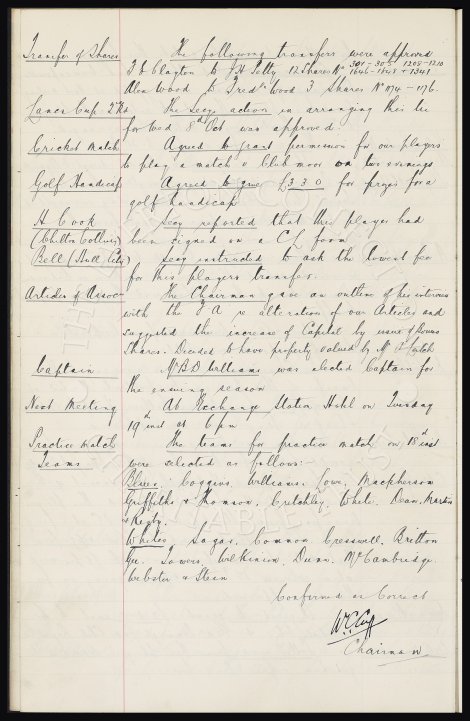 Transfer of Shares The following transfers were approved
T E Clayton to J H Petty 12 Shares Nos 301-305 1208-1210
1646-1648 + 1341
Alex Wood to Fredk Wood 3 Shares No 1174-1176.
Lancs Cup 2nd Rd The Secys action in arranging this tie
for Wed 8th Oct was approved.
Cricket Match Agreed to grant permission for our players
to play a match v Club moor on two evenings
Golf Handicap Agreed to give £3 3 0 for prizes for a
golf handicap
H Cook Secy reported that this player had
(Chilton Colliery) been signed on a C L form
Bell (Hull City) Secy instructed to ask the lowest fee
for this players transfer.
Articles of Assocn The Chairman gave an outline of his interview
with the F A re alteration of our Articles and
suggested the increase of Capital by issue of Bonus
Shares. Decided to have property valued by Mr
Captain Mr B D Williams was elected Captain for
the ensuing season
Next Meeting At Exchange Station Hotel on Tuesday
19th inst at 6 pm
Practice Match The teams for practice match on 18th inst
Teams were selected as follows:
Blues: Coggins, Williams, Lowe, Macpherson
Griffiths & Thomson, Critchley, White, Dean, Martin
& Rigby.
Whites Sagar, Common, Cresswell, Britton
Gee, Towers, Wilkinson, Dunn, McCambridge
Webster & Stein
Confirmed as Correct
W.C. Cuff
Chairman